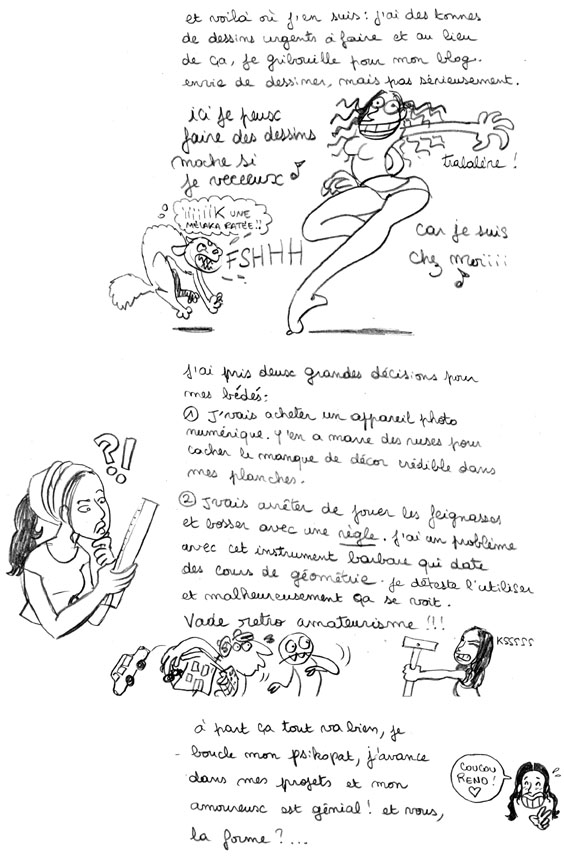 et voilà où j'en suis : j'ai des tonnes
de dessins urgents à faire et au lieu
de ça, je gribouille pour mon blog.
envie de dessiner, mais pas sérieusement.
ici je peux
faire des dessins
moche si
je veeeeux ♪
tralalère !
iiiiiiK UNE
MÉLAKA RATÉE !!
FSHHH
car je suis
chez moiiii
♪
j'ai pris deux grandes décisions pour
mes bédés :
① J'vais acheter un appareil photo
numérique. Y'en a marre des ruses pour
cacher le manque de décor crédible dans
mes planches.
?!
② Jvais arrêter de jouer les feignasses
et bosser avec une règle. j'ai un problème
avec cet instrument barbare qui date
des cours de géométrie. je déteste l'utiliser
et malheureusement ça se voit.
Vade retro amateurisme !!!
KSSSSS
à part ça tout va bien, je
boucle mon psikopat, j'avance
dans mes projets et mon
amoureux est génial ! et vous,
la forme ? ...
COUCOU
RENO !
♡